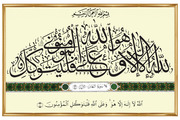 بسم الله الرحمن الرحيم
الله لا إله إلا هو وعلى الله فليتوكل المؤمنون
الله لا إله إلا هو وعلى الله فليتوكل المؤمنون